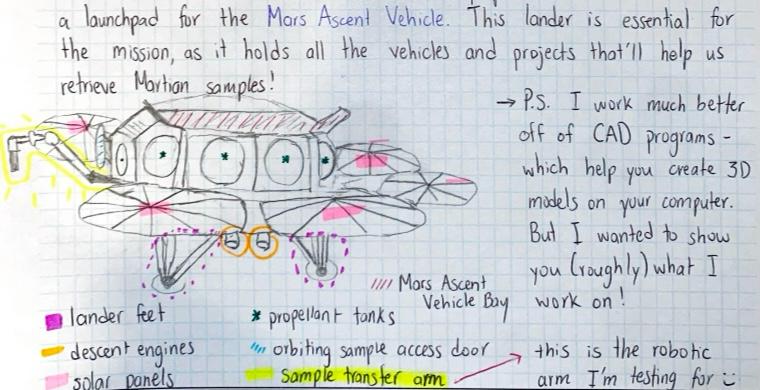 a launchpad for the Mars Ascent Vehicle. This lander is essential for
the mission, as it holds all the vehicles and projects that'll help us
retrieve Martian samples!
→ P.S. I work much better
off of CAD programs -
which help you create 3D
models on your computer.
But I wanted to show
you (roughly) what I
work on!
//// Mars Ascent
Vehicle Bay
lander feet
* propellant tanks
descent engines
orbiting sample access door
solar panels
Sample transfer arm
this is the robotic
arm I'm testing for :)